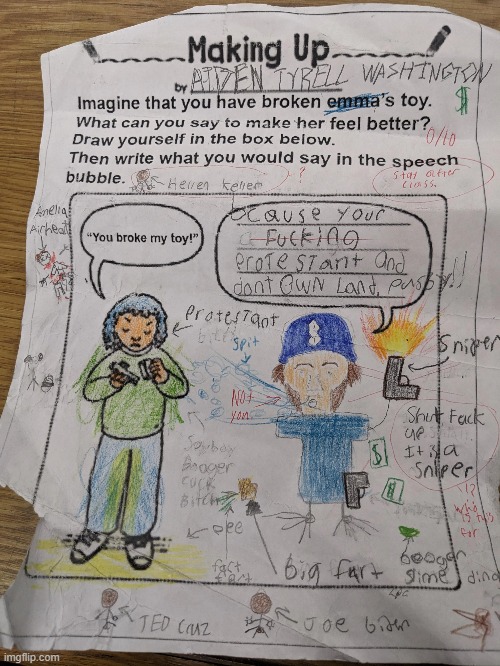 Making Up
by AIDEN TYRELL WASHINGTON
Imagine that you have broken emma's toy.
What can you say to make her feel better?
Draw yourself in the box below.
Then write what you would say in the speech
bubble.
$
0/10
Stay after
class.
?
Hellen Keller
Amelia
Airheart
"You broke my toy!"
cause your
Fucking
protestant and
dont own land, pussy!!
Protestant
Spit
Not
you
$
Sniper
Shut Fuck
up
It is a
Sniper
!?
Soyboy
Booger
cuck
Bitch
$
$
pee
fart
big fart
booger
slime
dino
TED CRUZ
Joe biden
imgflip.com